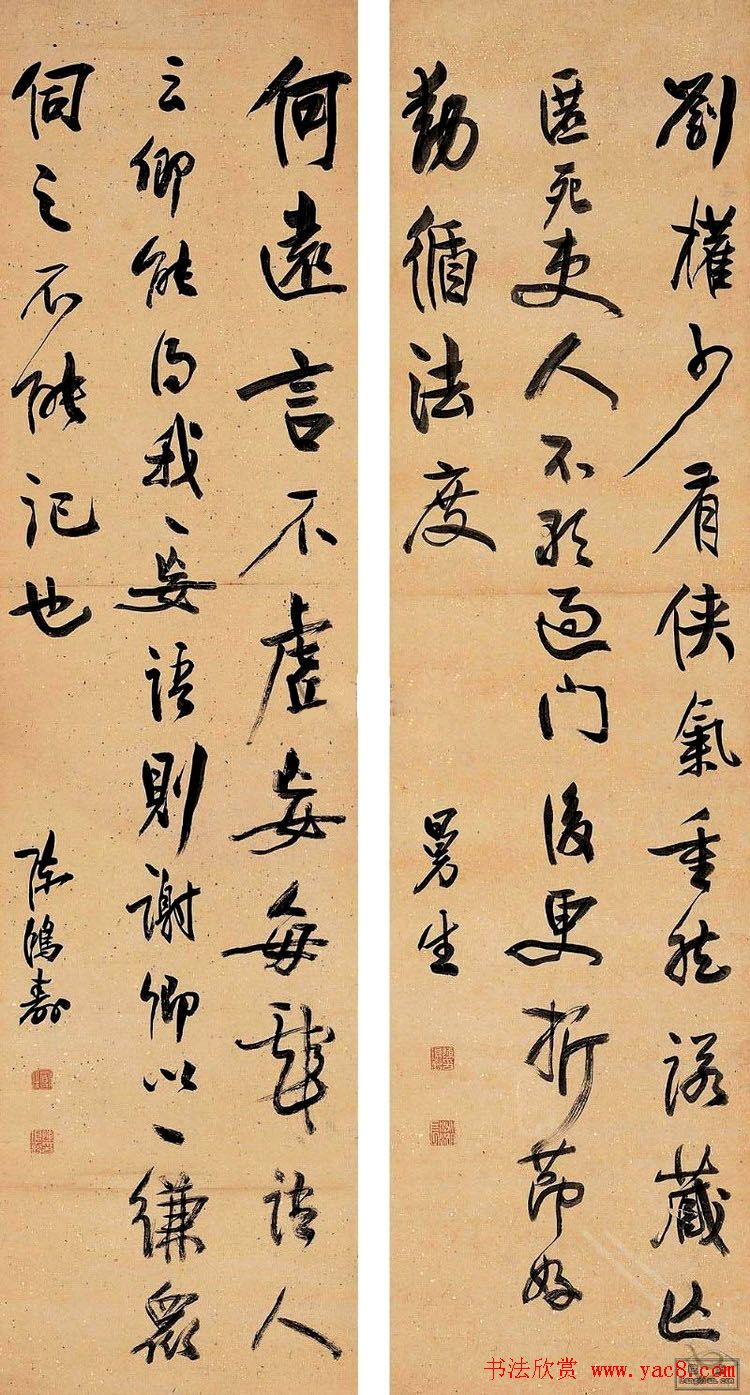 劉權少有俠氣重然諾藏亡
匿死吏人不敢過門後更折節好
動循法度
曼生
何遠言不虛妄每戲語人
云卿能得我一妄語則謝卿以一縑眾
伺之不能記也
陳鴻壽
书法欣赏 www.yac8.com